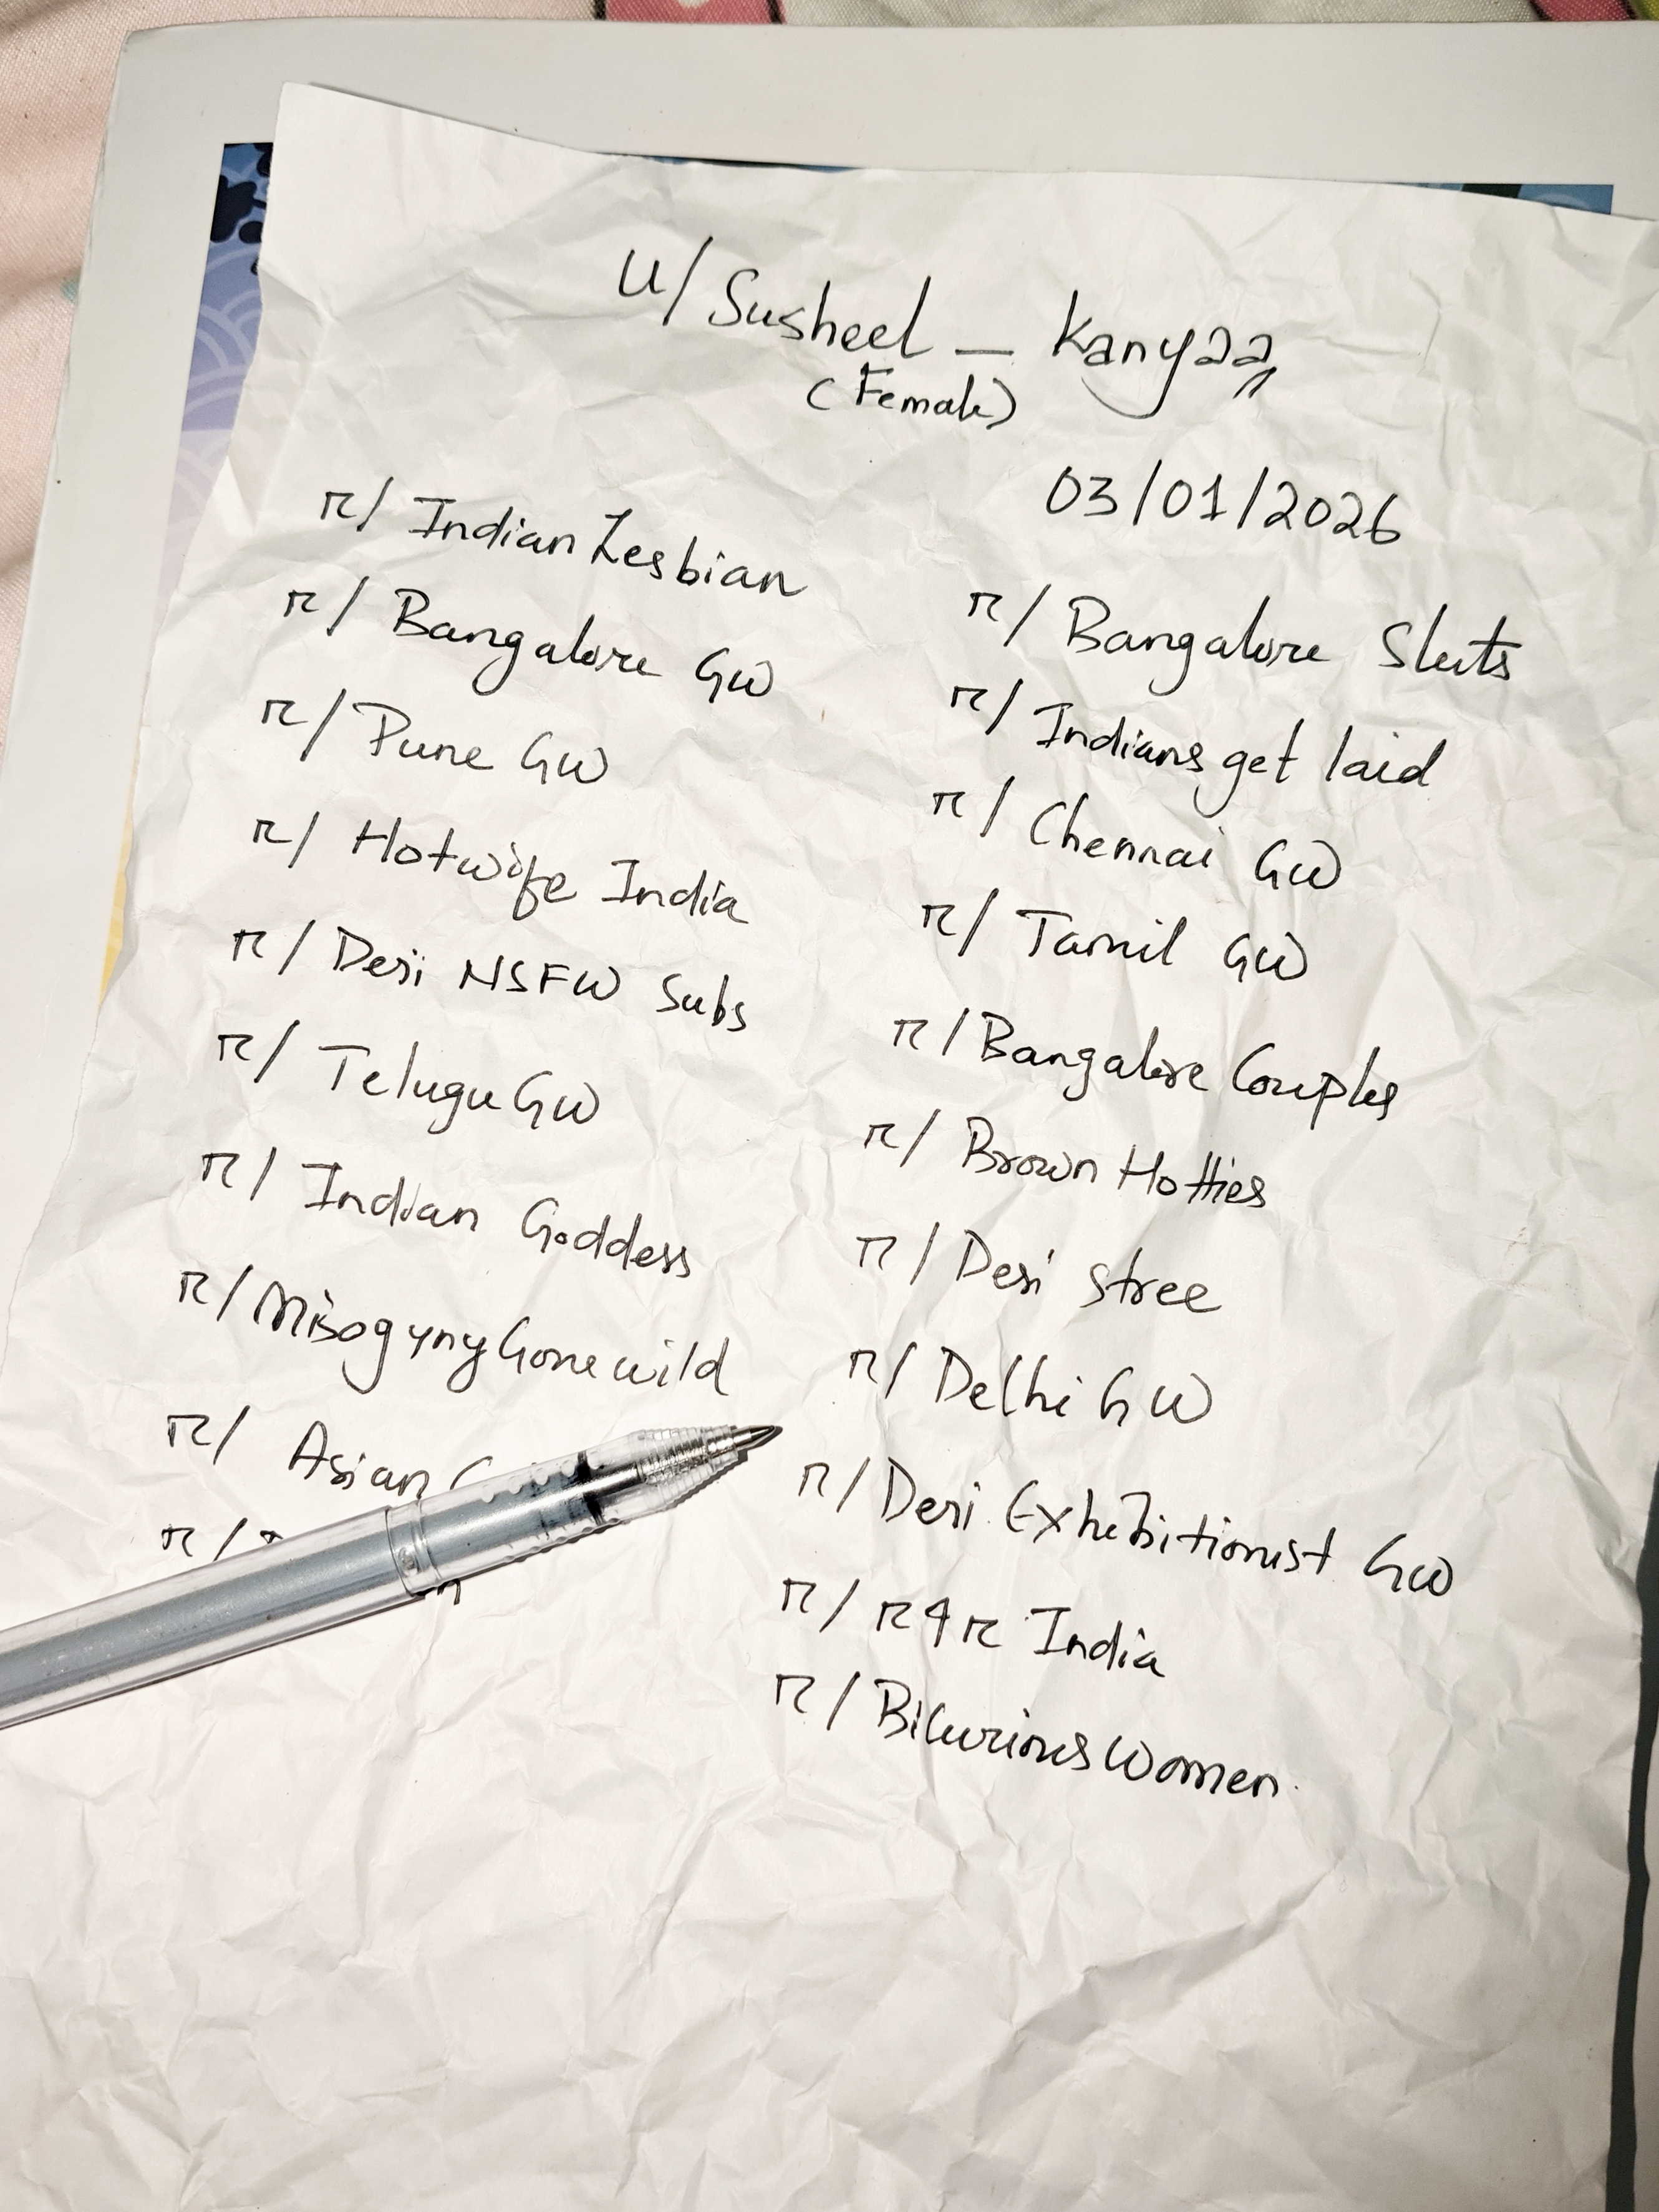 u/Susheel_Kanyaa
(Female)
03/01/2026
r/IndianLesbian
r/Bangalore GW
r/Pune GW
r/Hotwife India
r/Desi NSFW Subs
r/TeluguGW
r/Indian Goddess
r/MisogynyGonewild
r/Asian
r/
r/Bangalore Sluts
r/Indians get laid
r/Chennai GW
r/Tamil GW
r/Bangalore Couples
r/Brown Hotties
r/Desi stree
r/Delhi GW
r/Desi Exhibitionist GW
r/r4r India
r/BicuriousWomen